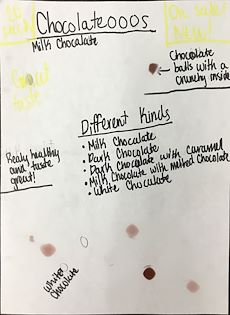 Chocolateooos
On sale!
Milk Chocalate
Great
taste
Chocolate
balls with a
crunchy inside
Different Kinds
• Milk Chocalate
• Dark Chocolate
• Dark Chocolate with caramel
• Milk Chocolate with melted Chocolate
• White Choculate
Realy healthy
and taste
great!
White
Chocolate